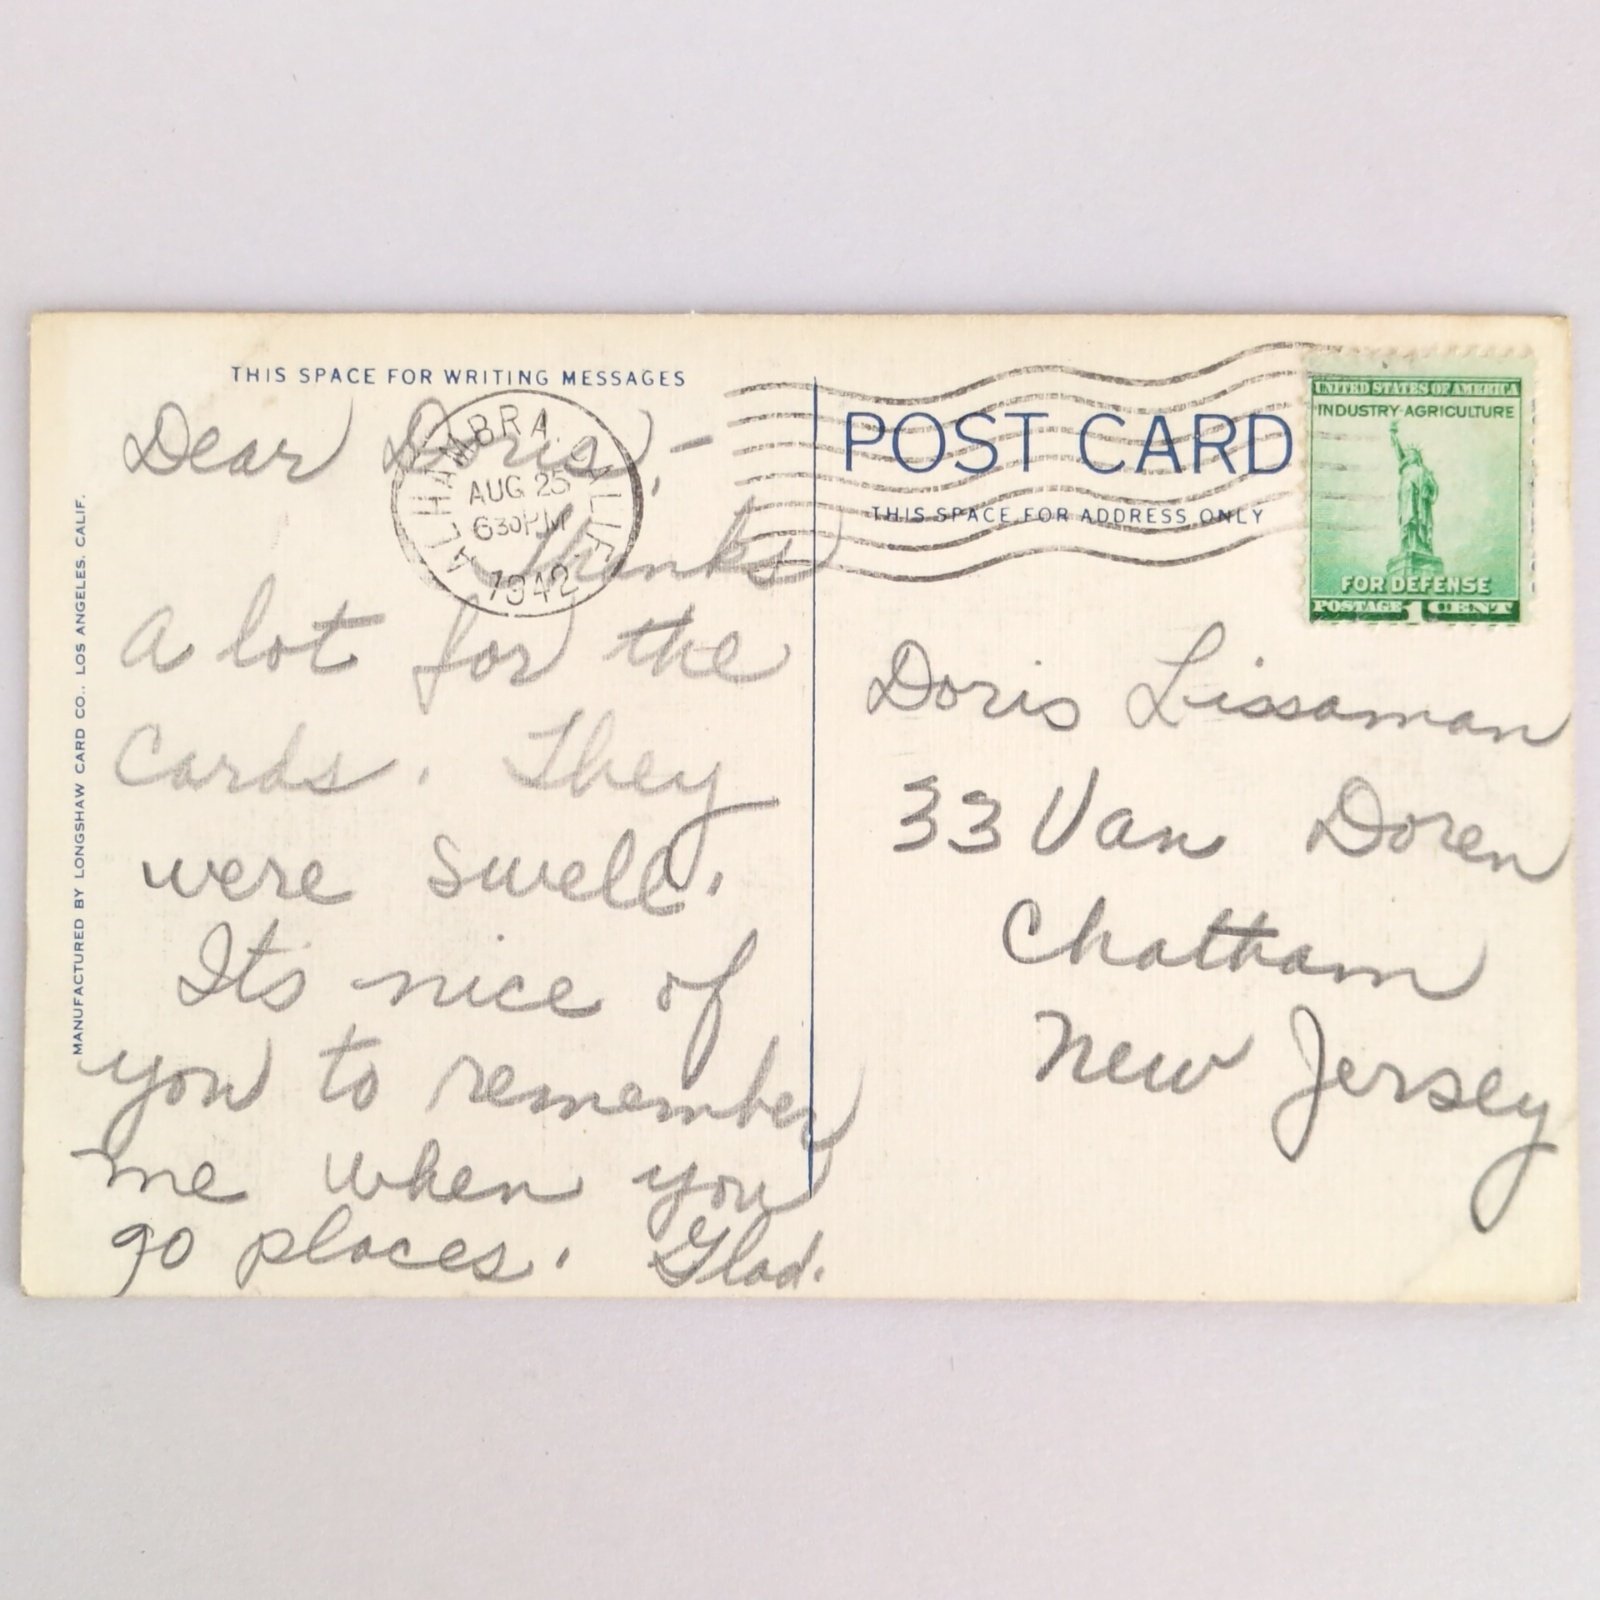 THIS SPACE FOR WRITING MESSAGES
Dear Doris,-
Thanks
a lot for the
cards. They
were swell.
It's nice of
you to remember
me when you
go places. Glad.
MANUFACTURED BY LONGSHAW CARD CO., LOS ANGELES, CALIF.
ALHAMBRA CALIF.
AUG 25
630PM
1942
POST CARD
THIS SPACE FOR ADDRESS ONLY
UNITED STATES OF AMERICA
INDUSTRY·AGRICULTURE
FOR DEFENSE
POSTAGE 1 CENT
Doris Lissaman
33 Van Doren
Chatham
New Jersey